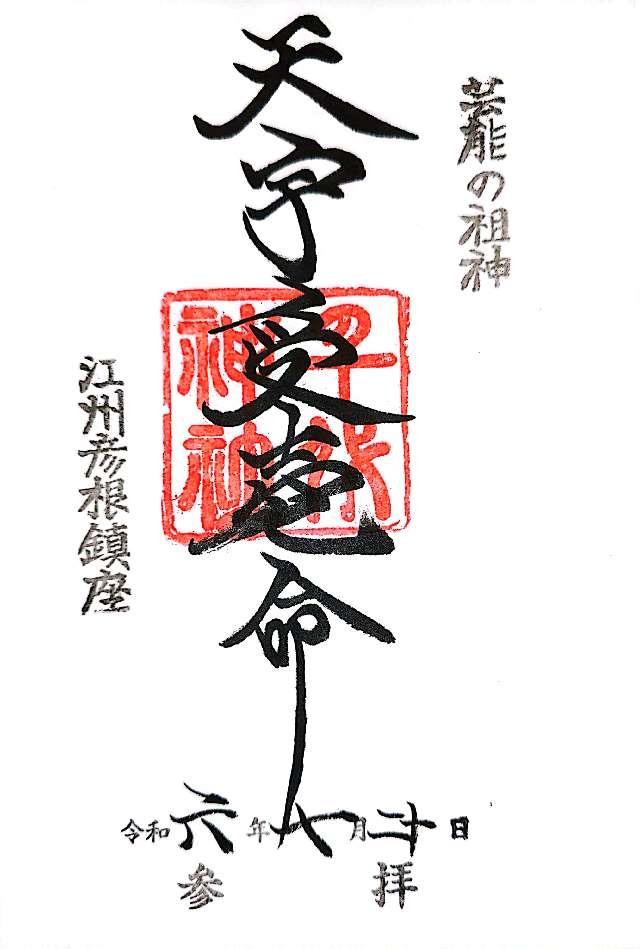 芸能の祖神
天宇受売命
江州彦根鎮座
令和六年七月二十日
参拝